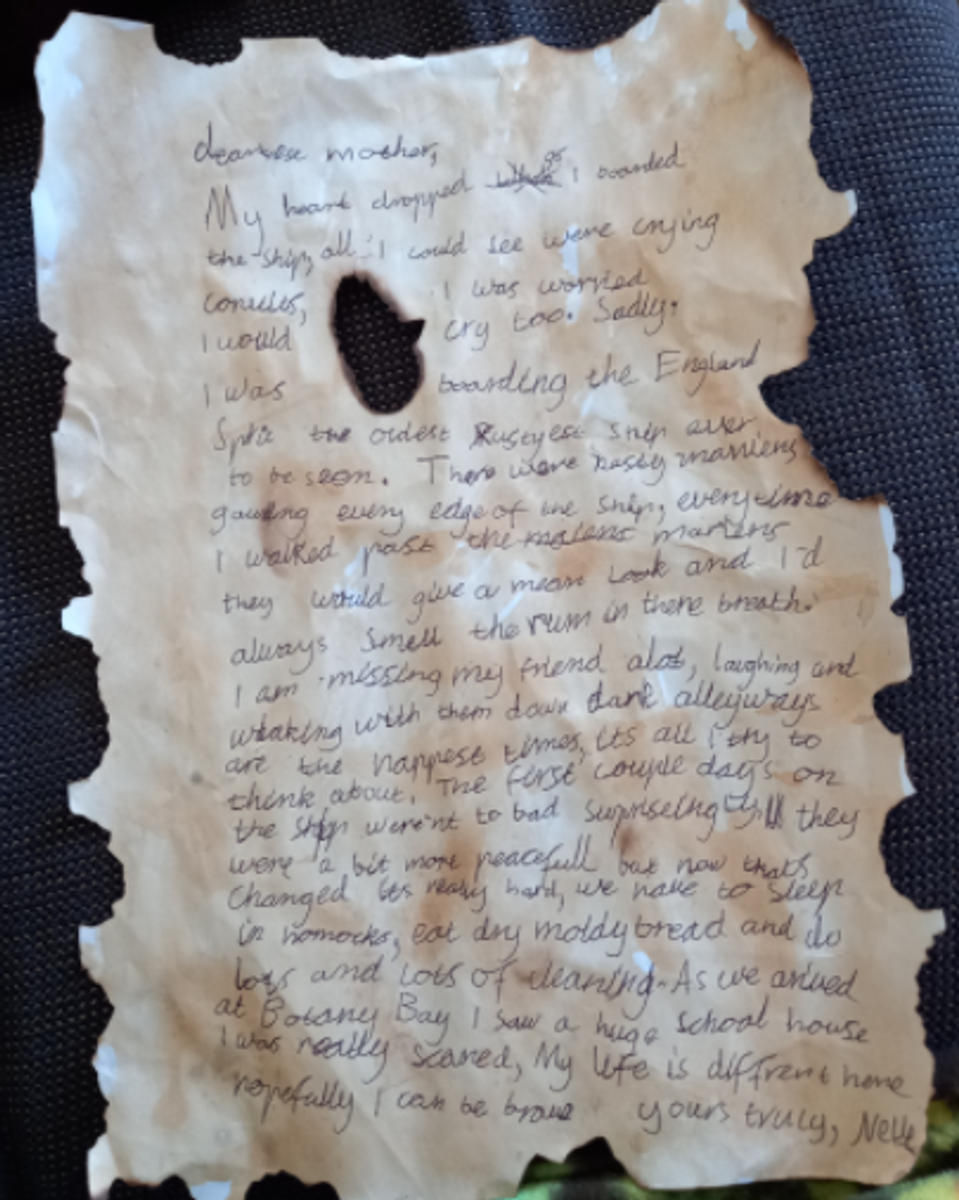 dearwese mother,
My heart dropped as I boarded
the ship, all I could see were crying
convicts, I was worried
I would cry too. Sadly.
I was boarding the England
Spirit the oldest Rustyest ship ever
to be seen. There were nasty mariens
gawding every edge of the ship, everytime
I walked past the mariens
they would give a mean look and I'd
always smell the rum in there breath.
I am missing my friend alot, laughing and
wlaking with them down dark alleyways
are the happest times, its all i try to
think about. The first couple days on
the ship weren't to bad surpriseingly they
were a bit more peacefull but now thats
changed its really hard, we have to sleep
in homocks, eat dry moldy bread and do
lots and lots of cleaning. As we arived
at Botany Bay I saw a huge school house
I was really scared, My life is diffrent here
hopefully I can be brave yours truly, Nelle